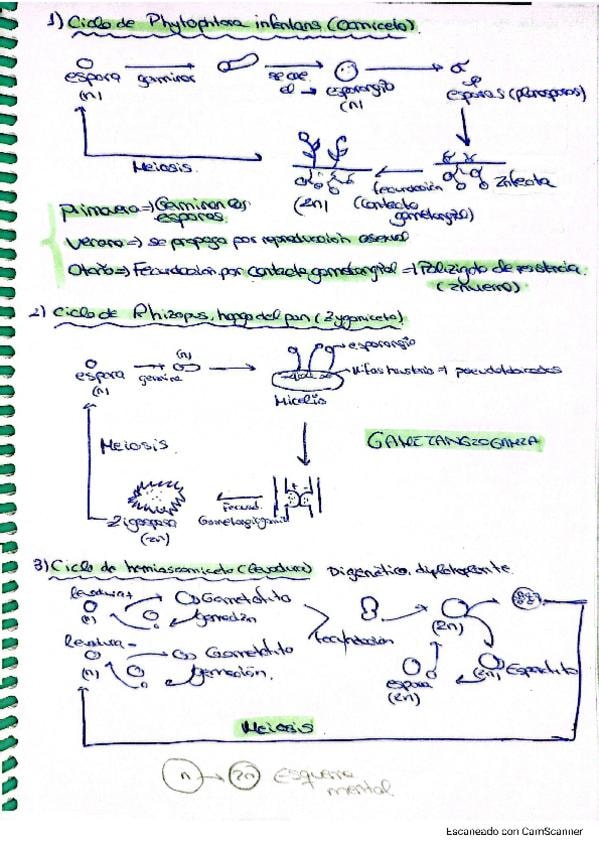 1) Ciclo de Phytophtora infestans (Oomiceto).
espora germina se cae el → esporangio esporas (planosporas)
(n) (n)
Meiosis. (2n) fecundación Infecta
(contacto gametangial)
Primavera => Germinan las esporas.
Verano => se propaga por reproducción asexual
Otoño => Fecundación por contacto gametangial => Polizigoto de resistencia.
(Invierno)
2) Ciclo de Rhizopus, hongo del pan (Zygomiceto)
(n) esporangio
espora germina Hifas haustorio => pseudofdorades
(n) Micelio
Meiosis. GAMETANGIOGAMIA
Fecund.
Zigospora Gametangiogamia
(2n)
3) Ciclo de hemiascomiceto (levadura) Digenético, diplohaplonte.
Levadura + Gametofito
(n) gemación
(2n)
Levadura - fecundación
Gametofito
(n) gemación. espora (2n) Esporofito
(2n)
Meiosis
n → 2n Esquema mental
Escaneado con CamScanner